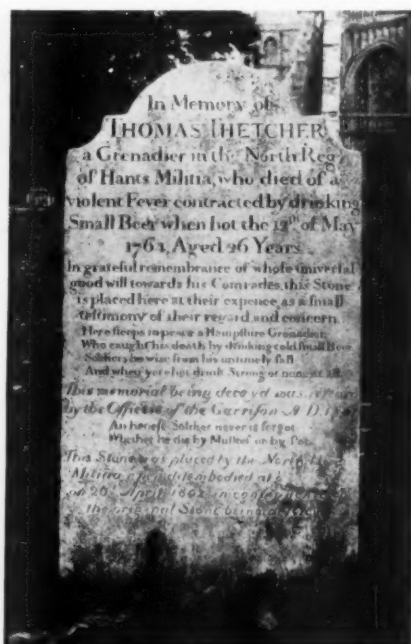 In Memory of
THOMAS THETCHER
a Grenadier in the North Reg.
of Hants Militia, who died of a
violent Fever contracted by drinking
Small Beer when hot the 12th of May
1764, Aged 26 Years.
In grateful remembrance of whose universal
good will towards his Comrades, this Stone
is placed here at their expence, as a small
testimony of their regard and concern.
Here sleeps in peace a Hampshire Grenadier,
Who caught his death by drinking cold small Beer
Soldiers be wise from his untimely fall
And when ye're hot drink Strong or none at all.
This memorial being decay'd was restor'd
by the Officers of the Garrison A.D.
An honest Soldier never is forgot
Whether he die by Musket or by Pot.
This Stone was placed by the North
Militia disembodied at
on 26 April 1802 in
the original Stone being